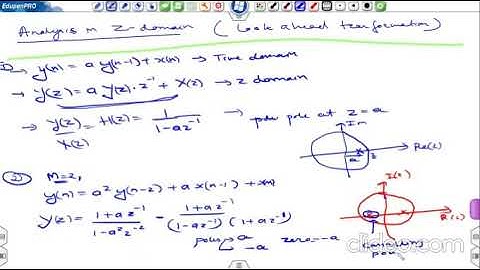 EdupenPRO
Analysis in Z-domain (Look ahead transformation)
1) → y(n) = a y(n-1) + x(n) → Time domain
→ Y(z) = a Y(z) · z⁻¹ + X(z) → Z domain
→ Y(z)/X(z) = H(z) = 1/(1-az⁻¹) → pole at z = a
Im
Re(z)
a
2) M=2,
y(n) = a² y(n-2) + a x(n-1) + x(n)
Y(z) = (1+az⁻¹)/(1-a²z⁻²) - (1+az⁻¹)/((1-az⁻¹)(1+az⁻¹))
poles → a zero = -a
-a
I(z)
R(z)
clideo.com